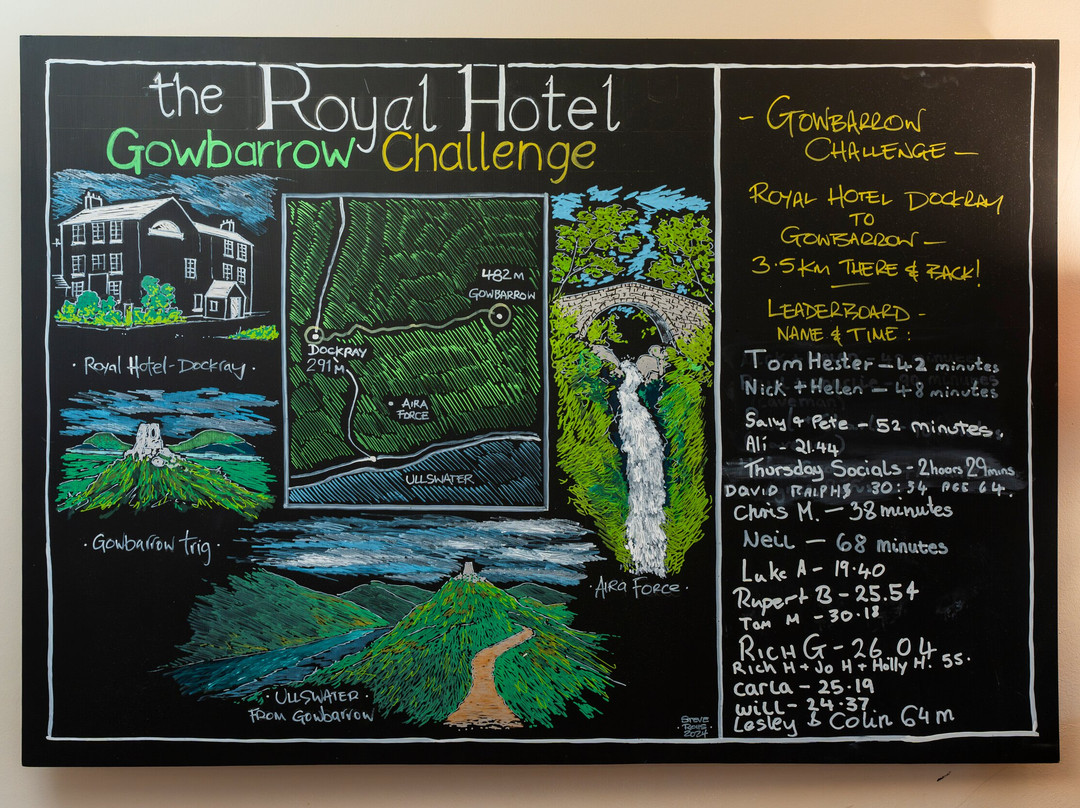 the Royal Hotel
Gowbarrow Challenge
Royal Hotel-Dockray.
482m
GOWBARROW
DOCKRAY
291m
AIRA
FORCE
ULLSWATER
·Gowbarrow trig·
·AIRA FORCE·
·ULLSWATER·
FROM GOWBARROW
STEVE
2024
- GOWBARROW
CHALLENGE -
ROYAL HOTEL DOCKRAY
TO
GOWBARROW -
3.5KM THERE & BACK!
LEADERBOARD -
NAME & TIME:
Tom Hester - 42 minutes
Nick + Helen - 48 minutes
Sally & Pete - 52 minutes.
Ali - 21.44
Thursday Socials - 2hours 29mins
DAVID RALPHS 30:34 AGE 64.
Chris M. - 38 minutes
Neil - 68 minutes
Luke A - 19.40
Rupert B - 25.54
Tom M - 30.18
RICH G - 26.04
Rich H + Jo H + Holly H. 55.
Carla - 25.19
Will - 24.37.
Lesley & Colin 64m